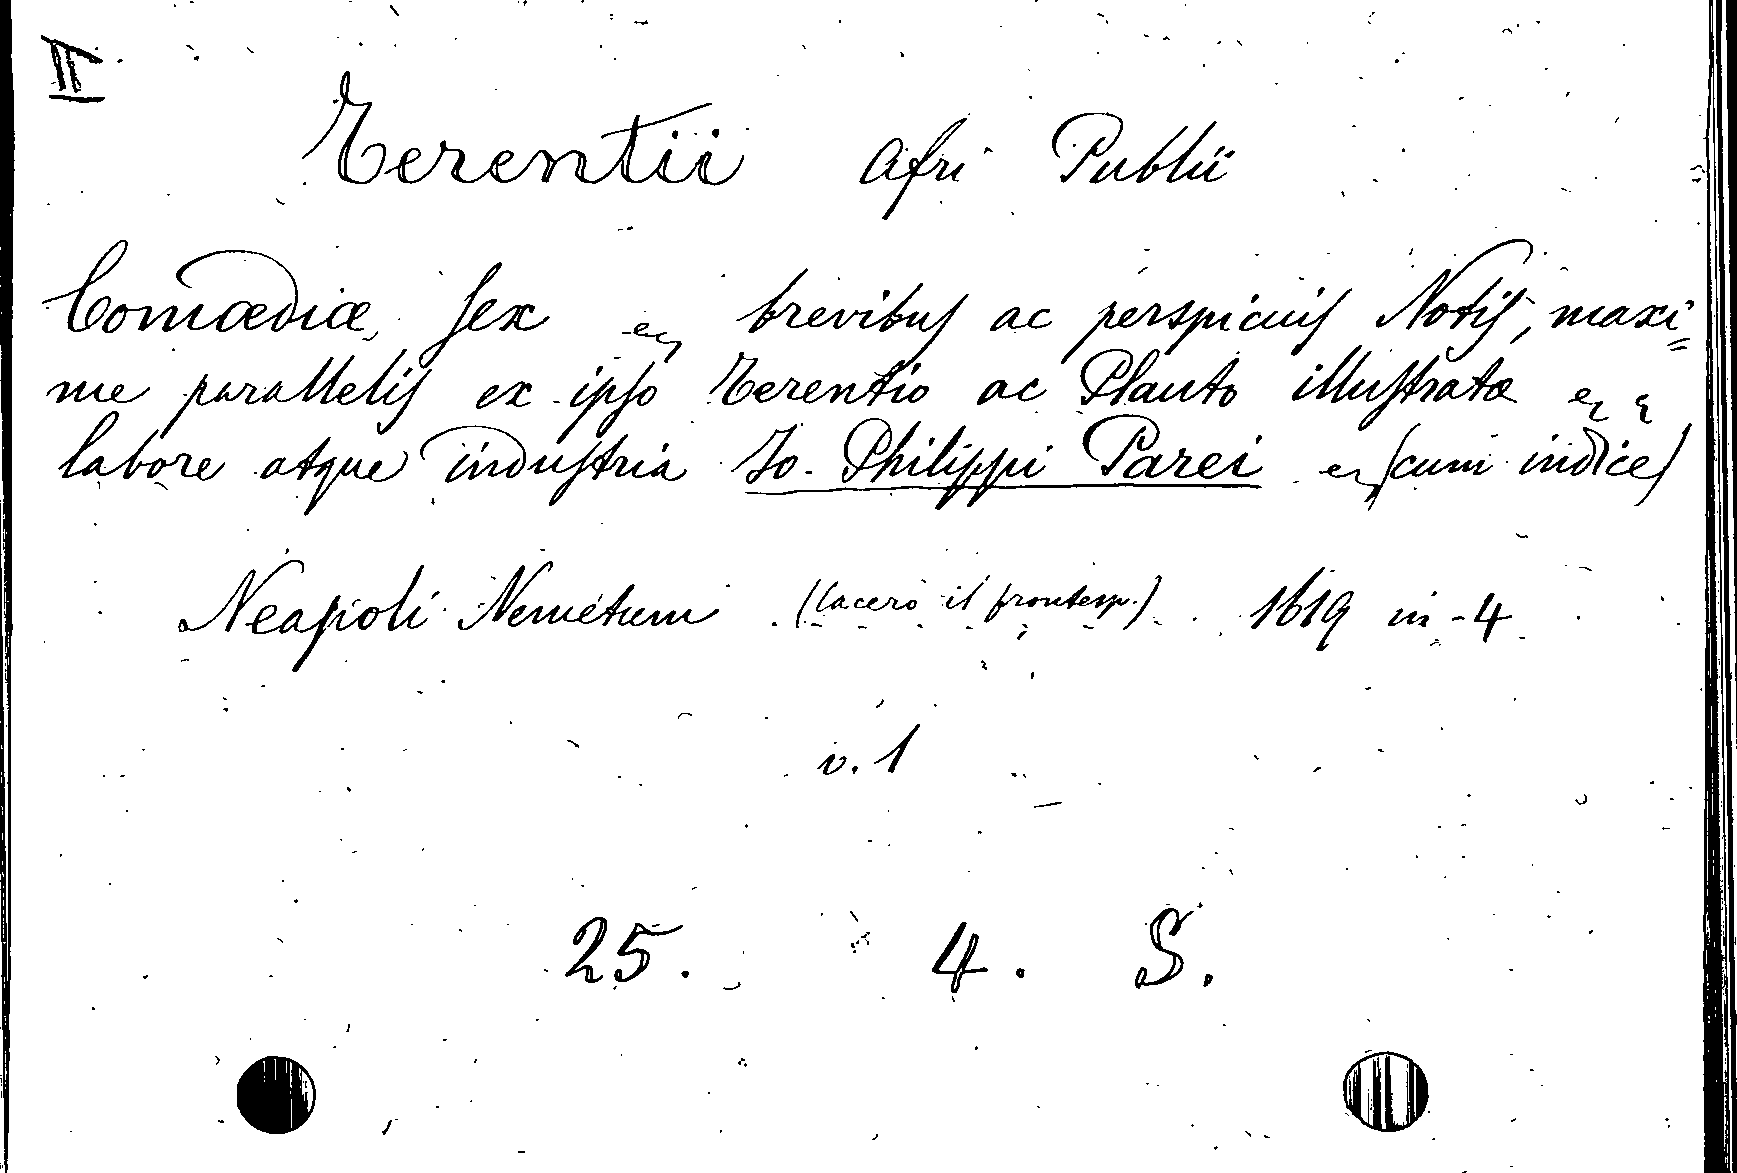 II
Terentii Afri Publii
Comœdiæ sex brevibus ac perspicuis Notis, maxi=
me parallelis ex ipso Terentio ac Plauto illustratæ
labore atque industria Jo. Philippi Parei (cum indice)
Neapoli Nemetum (lacero il frontesp.) 1619 in-4
v. 1
25. 4. S.